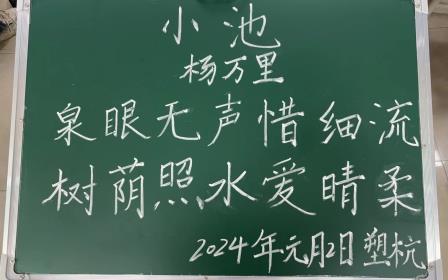 小池
杨万里
泉眼无声惜细流
树荫照水爱晴柔
2024年元月2日塑杭